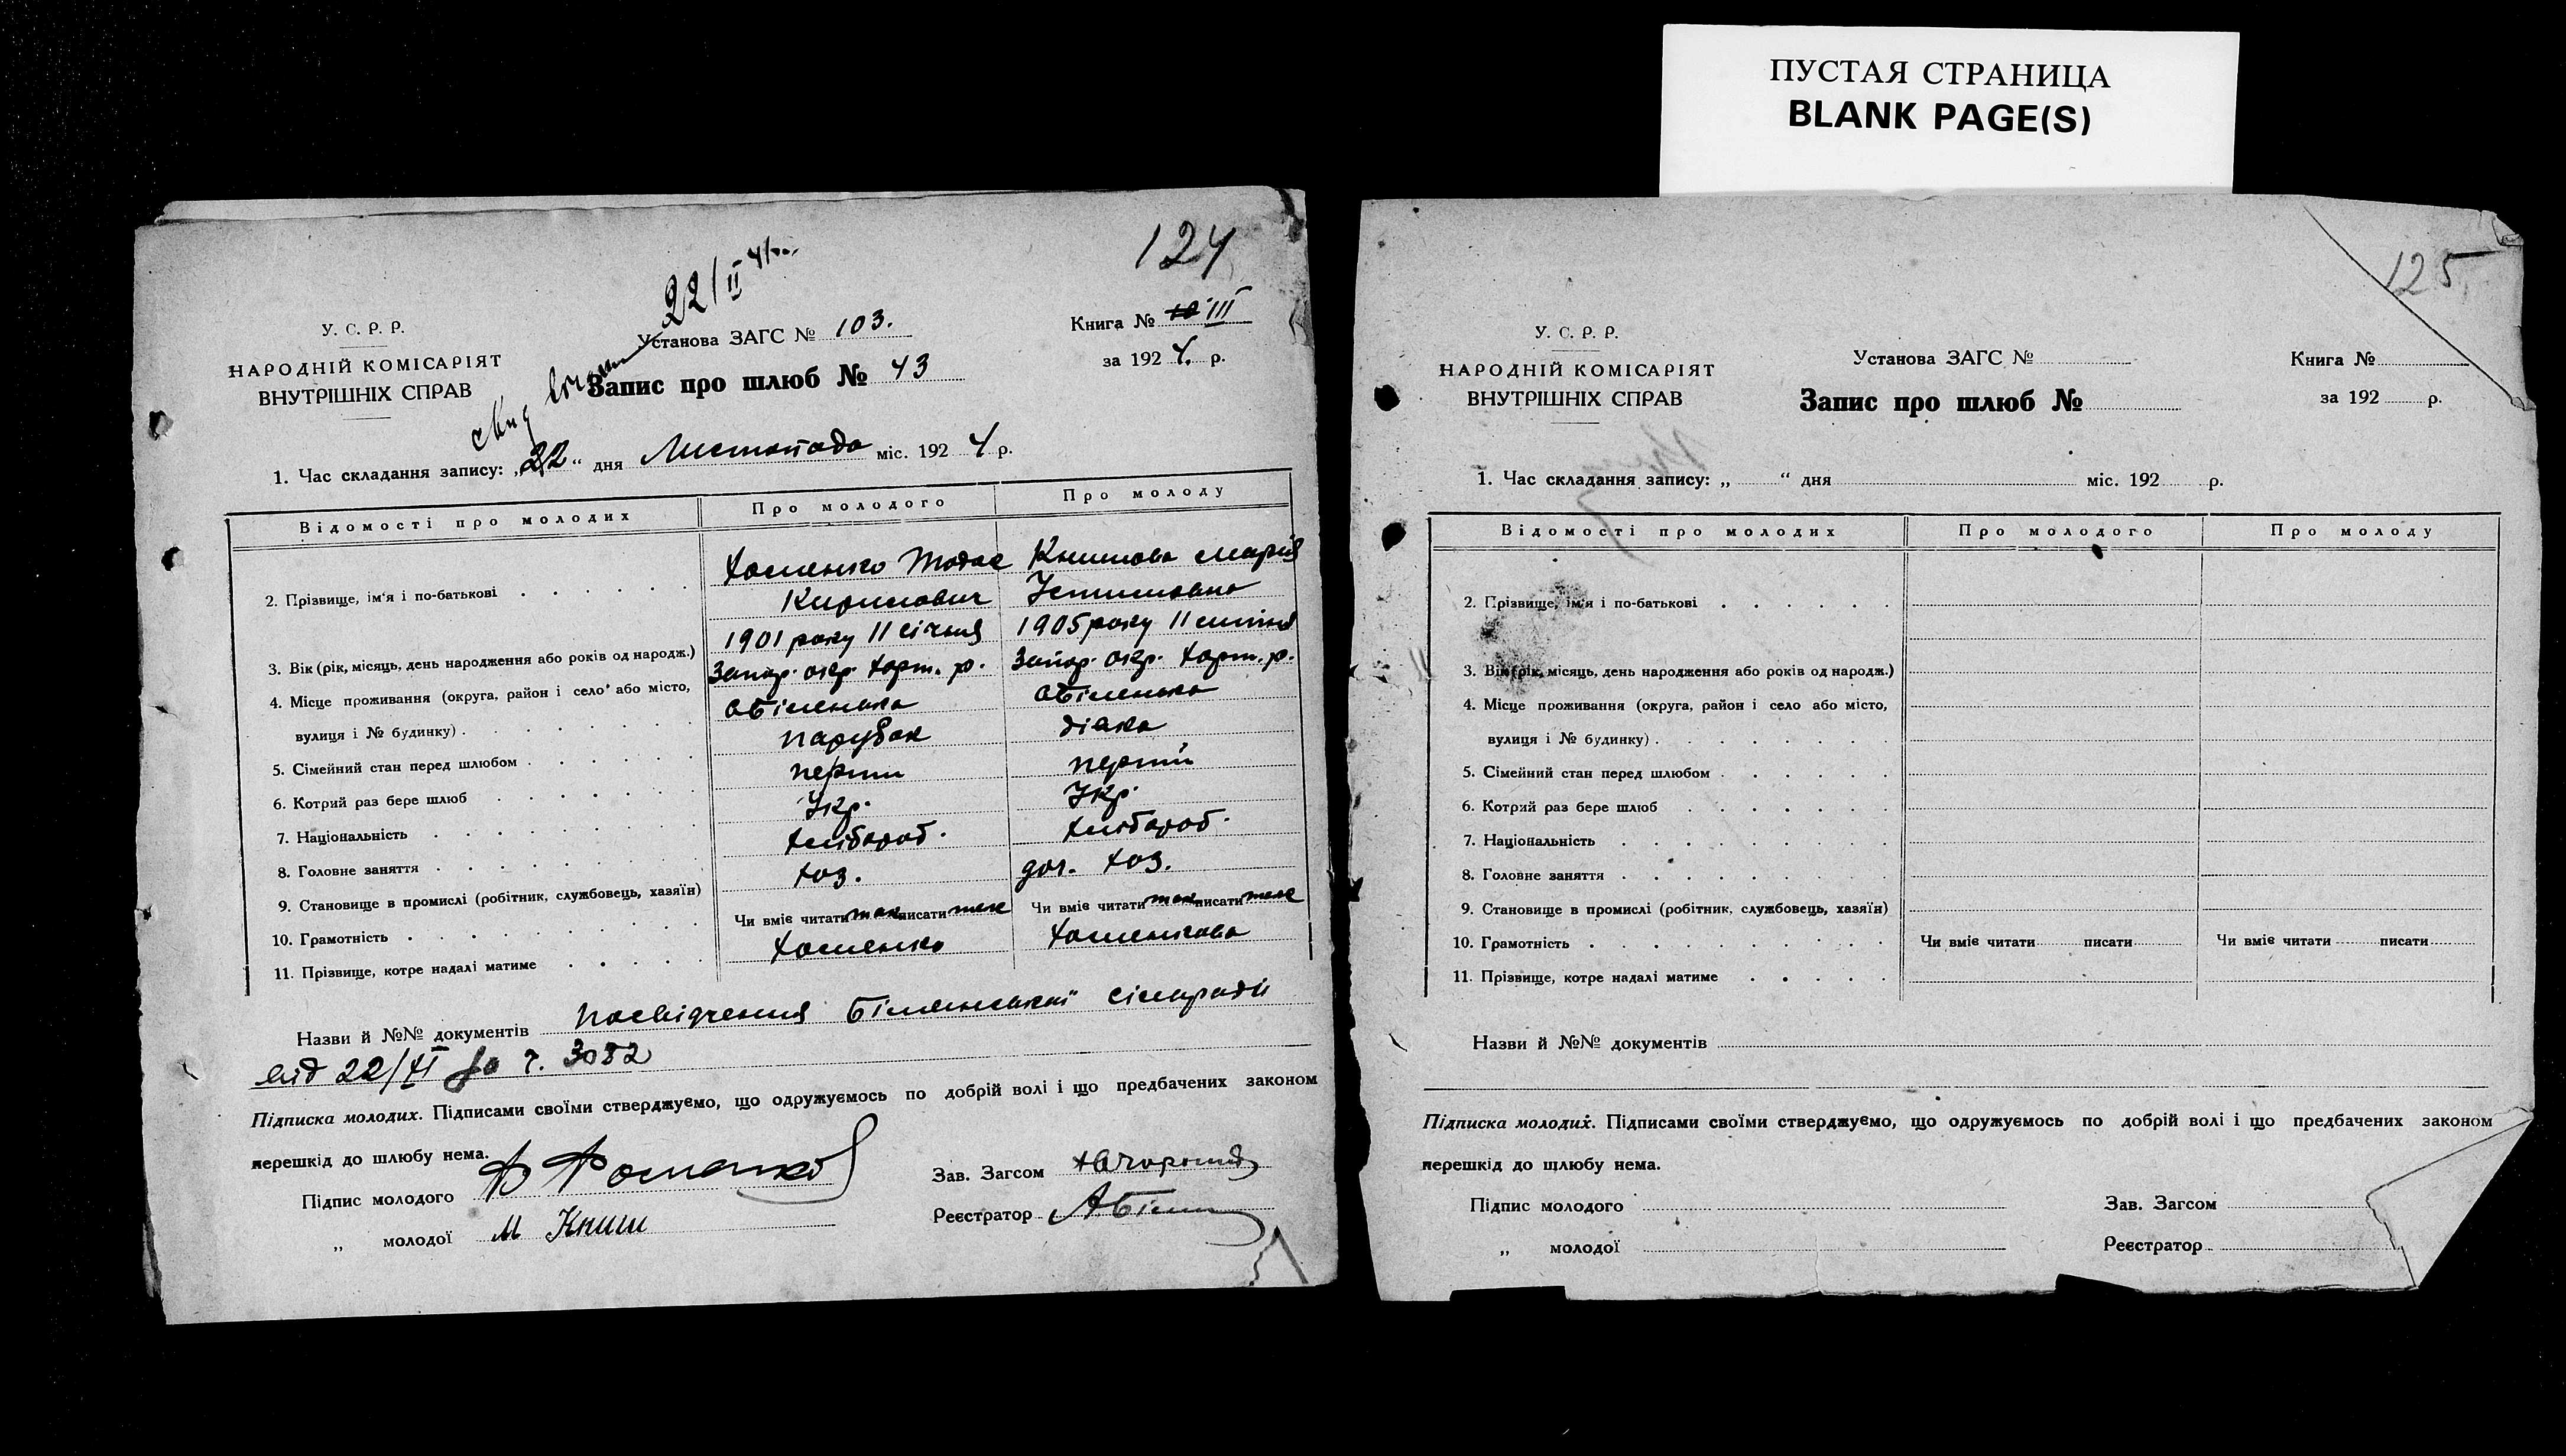 ПУСТАЯ СТРАНИЦА
BLANK PAGE(S)
124
22/II
У. С. Р. Р.
НАРОДНІЙ КОМІСАРІЯТ
ВНУТРІШНІХ СПРАВ
Установа ЗАГС № 103.
Запис про шлюб № 43
Книга № III
за 192 4. р.
1. Час складання запису: „22“ дня Листопада міс. 192 4 р.
Відомості про молодих Про молодого Про молоду
Хоменко Тодос Книшова Марія
2. Прізвище, ім'я і по-батькові Кирилович Устимовна
3. Вік (рік, місяць, день народження або років од народж.) 1901 року 11 січня 1905 року 11 липня
4. Місце проживання (округа, район і село або місто, Запор. окр. Хорт. р. Запор. окр. Хорт. р.
вулиця і № будинку) сБіленька сБіленька
5. Сімейний стан перед шлюбом парубок дівка
6. Котрий раз бере шлюб перший перший
7. Національність Укр. Укр.
8. Головне заняття хлібороб. хлібороб.
9. Становище в промислі (робітник, службовець, хазяїн) хоз. доч. хоз.
10. Грамотність Чи вміє читати так писати теж Чи вміє читати так писати теж
11. Прізвище, котре надалі матиме Хоменко Хоменкова
Назви й №№ документів Посвідчення Біленської сільради
від 22/XI за ч. 3082
Підписка молодих. Підписами своїми стверджуємо, що одружуємось по добрій волі і що предбачених законом
перешкід до шлюбу нема.
Підпис молодого Ф Фоменко
Зав. Загсом
„ молодої М Книш
Реєстратор
125
У. С. Р. Р.
НАРОДНІЙ КОМІСАРІЯТ
ВНУТРІШНІХ СПРАВ
Установа ЗАГС №
Запис про шлюб №
Книга №
за 192 р.
1. Час складання запису: „ “ дня міс. 192 р.
Відомості про молодих Про молодого Про молоду
2. Прізвище, ім'я і по-батькові
3. Вік (рік, місяць, день народження або років од народж.)
4. Місце проживання (округа, район і село або місто,
вулиця і № будинку)
5. Сімейний стан перед шлюбом
6. Котрий раз бере шлюб
7. Національність
8. Головне заняття
9. Становище в промислі (робітник, службовець, хазяїн)
10. Грамотність Чи вміє читати писати Чи вміє читати писати
11. Прізвище, котре надалі матиме
Назви й №№ документів
Підписка молодих. Підписами своїми стверджуємо, що одружуємось по добрій волі і що предбачених законом
перешкід до шлюбу нема.
Підпис молодого
Зав. Загсом
„ молодої
Реєстратор